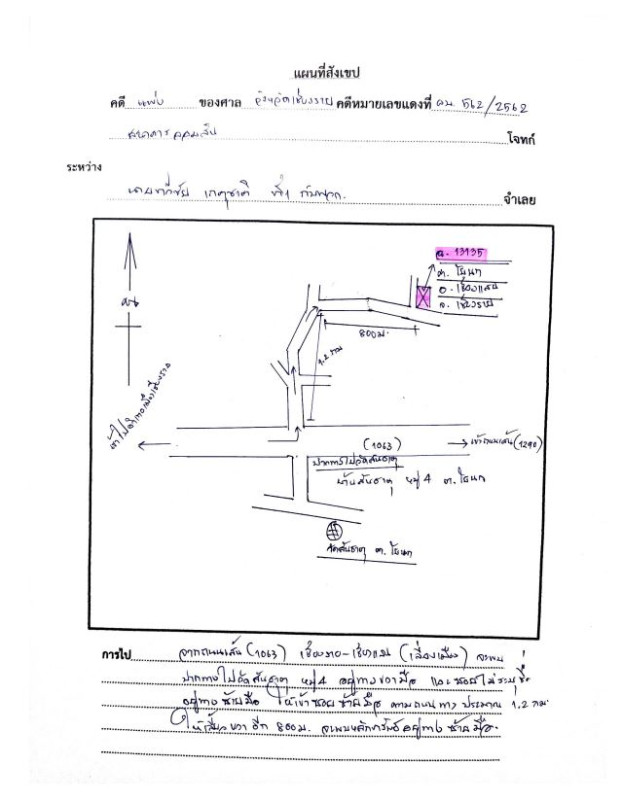 แผนที่สังเขป
คดี แพ่ง ของศาล จังหวัดเชียงราย คดีหมายเลขแดงที่ ผบ. 562/2562
ธนาคารออมสิน โจทก์
ระหว่าง
จำเลย
ฉ. 13135
ต. โยนก
อ. เชียงแสน
จ. เชียงราย
800ม.
1.2 กม
(1063)
เข้าถนนเส้น(1290)
ปากทางไปวัดสันธาตุ
บ้านสันธาตุ หมู่ 4 ต. โยนก
วัดสันธาตุ ต. โยนก
การไป จากถนนเส้น (1063) เชียงราย-เชียงแสน จะพบ
ปากทางไปวัดสันธาตุ หมู่ 4 อยู่ทางขวามือ และซอยไม่ระบุชื่อ
อยู่ทางซ้ายมือ ให้เข้าซอยซ้ายมือ ตามถนนทาง ประมาณ 1.2 กม.
ให้เลี้ยวขวา อีก 800ม. จะพบหลักทรัพย์อยู่ทางซ้ายมือ.